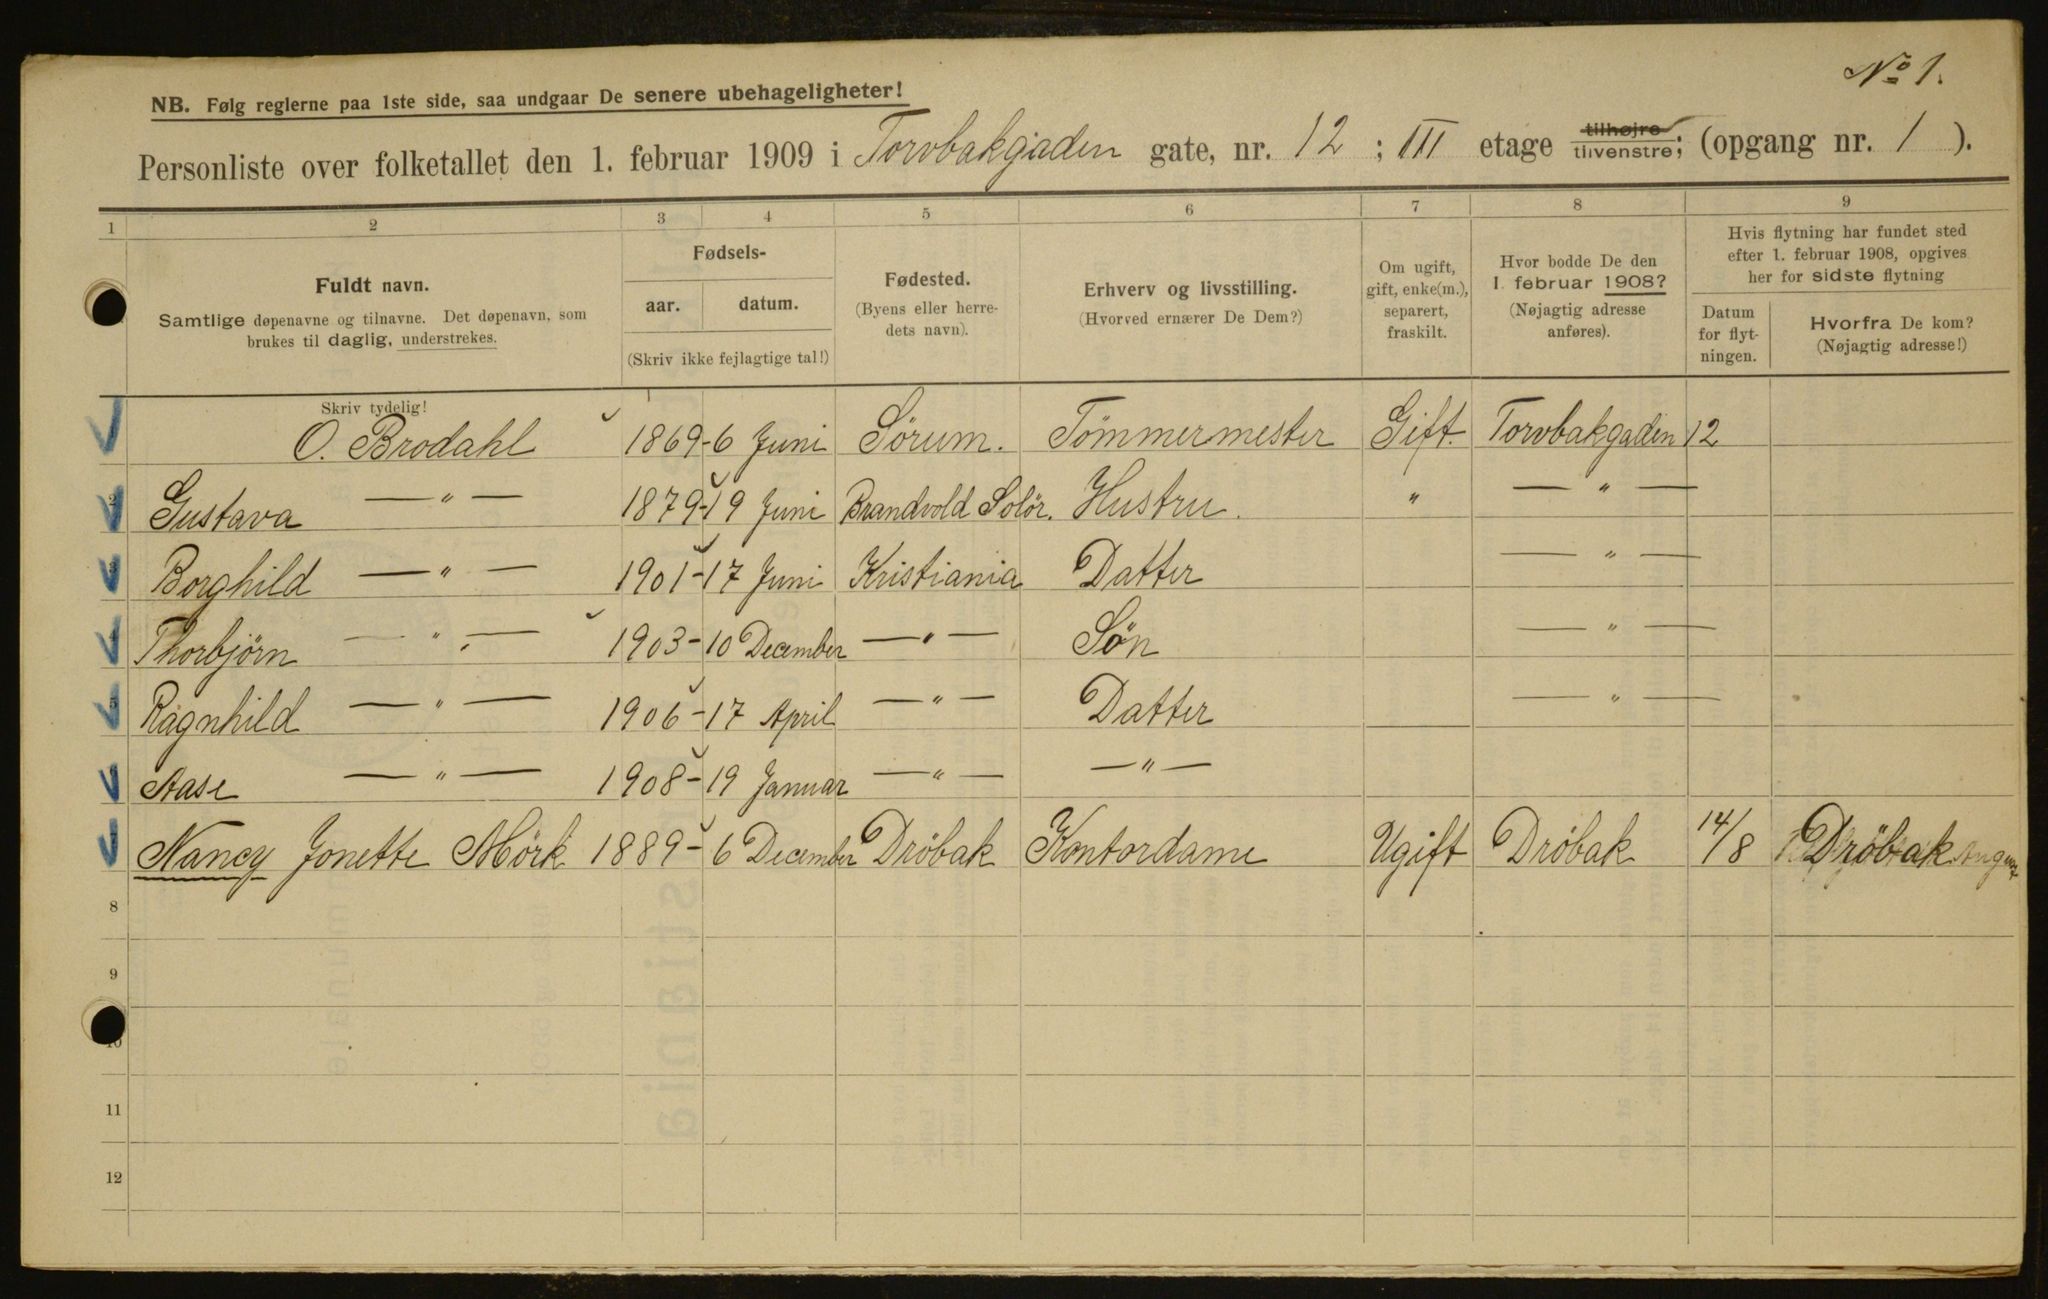 No 1.
NB. Følg reglerne paa 1ste side, saa undgaar De senere ubehageligheter!
Personliste over folketallet den 1. februar 1909 i Torvbakgaden gate, nr. 12 ; III etage tilhøjre tilvenstre; (opgang nr. 1 ).
1 2 3 4 5 6 7 8 9
Fuldt navn.
Samtlige døpenavne og tilnavne. Det døpenavn, som
brukes til daglig, understrekes.
Skriv tydelig!
Fødsels-
aar. datum.
(Skriv ikke fejlagtige tal!)
Fødested.
(Byens eller herre-
dets navn).
Erhverv og livsstilling.
(Hvorved ernærer De Dem?)
Om ugift,
gift, enke(m.),
separert,
fraskilt.
Hvor bodde De den
1. februar 1908?
(Nøjagtig adresse
anføres).
Hvis flytning har fundet sted
efter 1. februar 1908, opgives
her for sidste flytning
Datum
for flyt-
ningen.
Hvorfra De kom?
(Nøjagtig adresse!)
O. Brodahl 1869 - 6 Juni Sørum. Tömmermester Gift. Torvbakgaden 12
2 Gustava — " — 1879 - 19 Juni Brandvold Solör. Hustru. " — " —
3 Borghild — " — 1901 - 17 Juni Kristiania Datter — " —
4 Thorbjörn — " — 1903 - 10 December — " — Sön — " —
5 Ragnhild — " — 1906 - 17 April — " — Datter — " —
6 Aase — " — 1908 - 19 Januar — " — — " —
7 Nancy Jonette Mörk 1889 - 6 December Dröbak Kontordame Ugift Dröbak 14/8 Dröbak
8
9
10
11
12